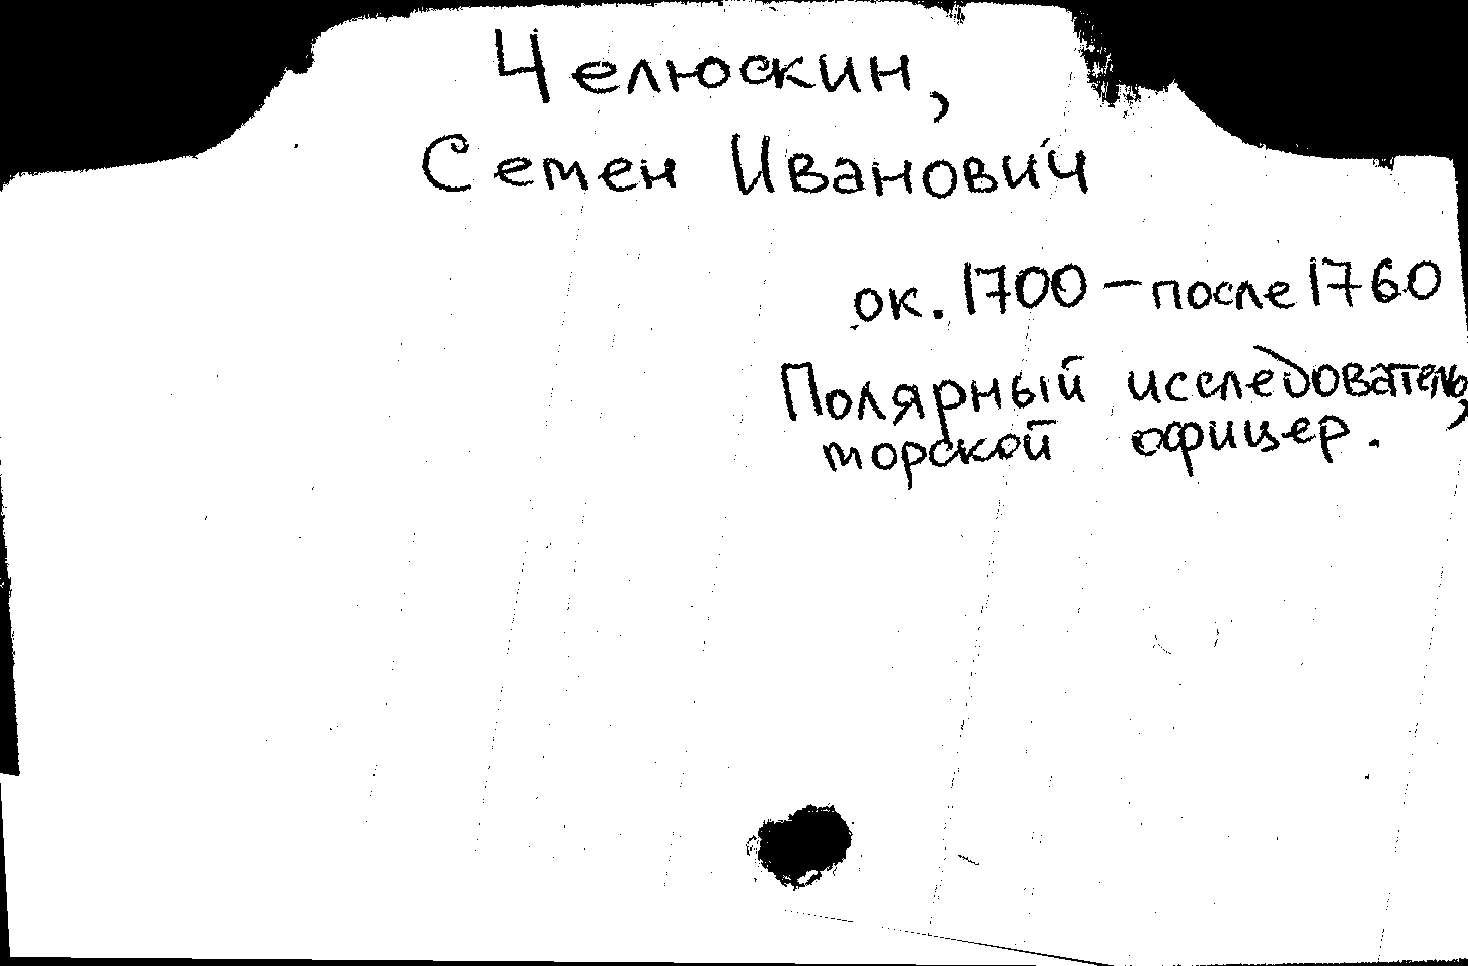 Челюскин,
Семен Иванович
ок. 1700 – после 1760
Полярный исследователь,
морской офицер.